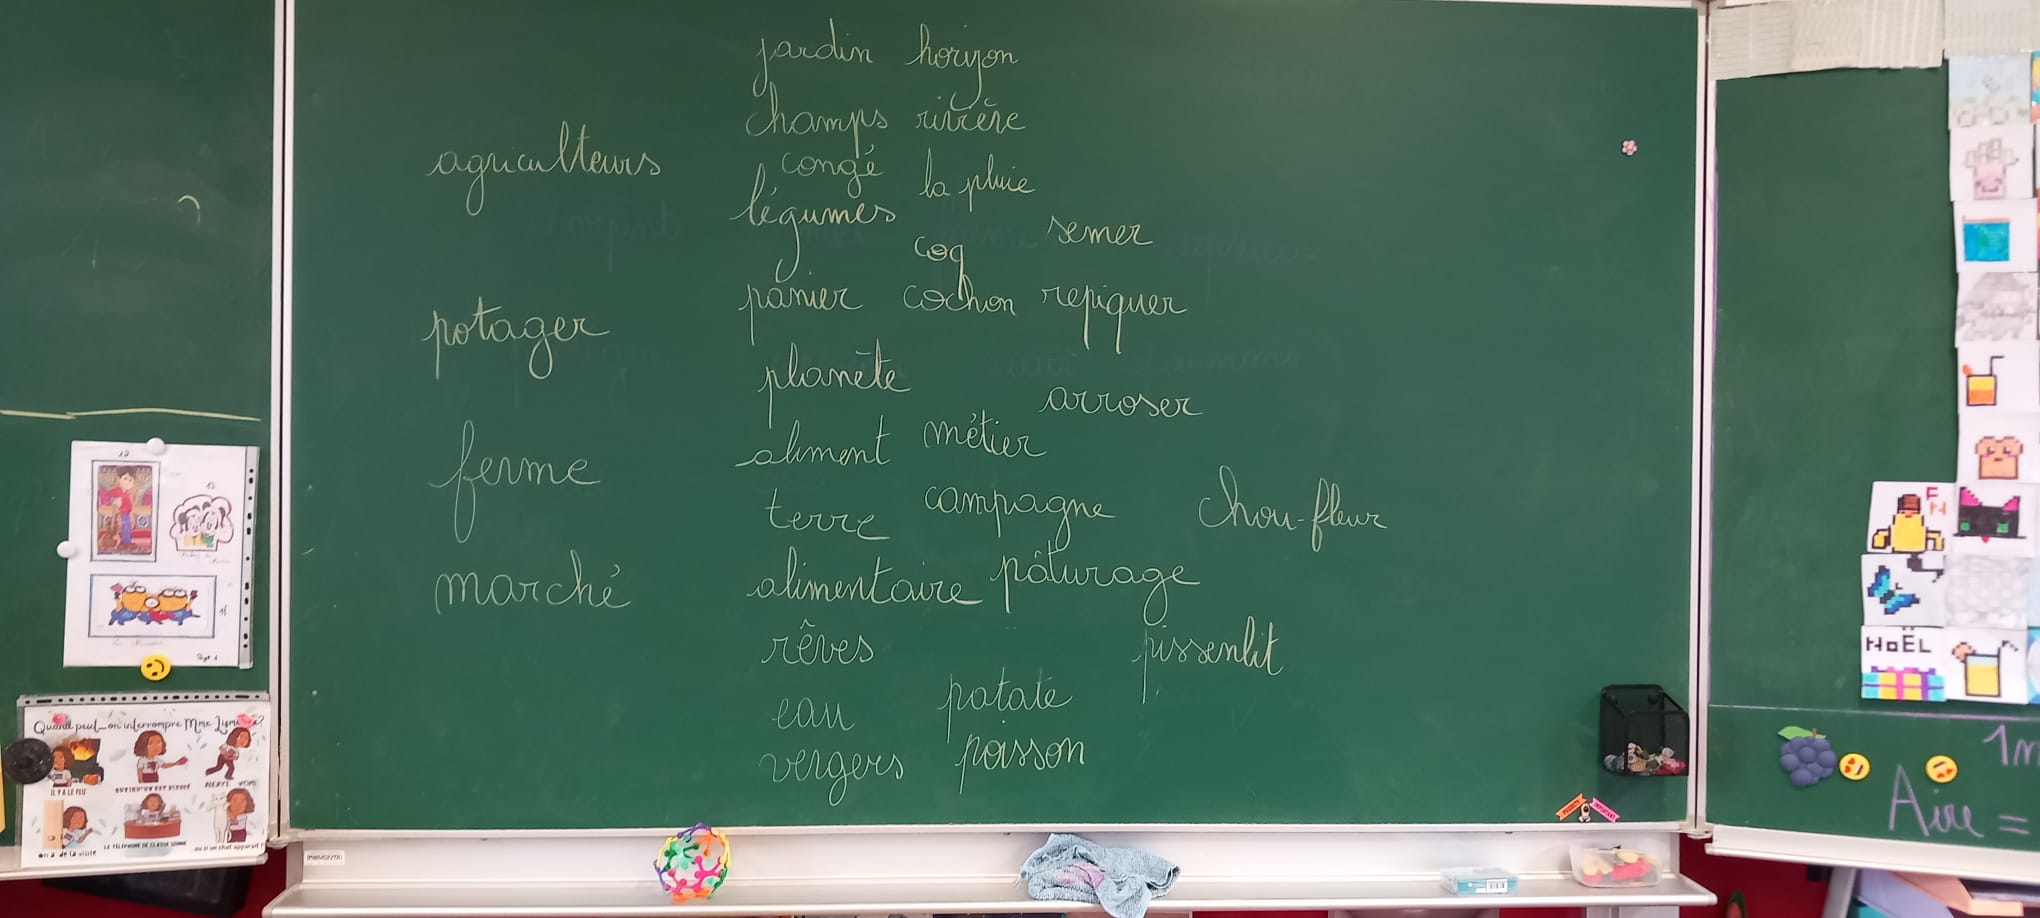 jardin horizon
champs rivière
agriculteurs
congé la pluie
légumes semer
coq
panier cochon repiquer
potager
planète
arroser
aliment métier
ferme
terre campagne chou-fleur
marché
alimentaire pâturage
rêves pissenlit
eau patate
vergers poisson
Quand peut-on interrompre Mme
IL Y A LE FEU
QUELQU'UN EST BLESSÉ
on a de la visite
LE TÉLÉPHONE DE CLASSE SONNE
ou si un chat apparaît !
NOËL
1m
Aire =